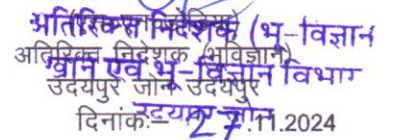 अतिरिक्त निदेशक (भू-विज्ञान
अतिरिक्त निदेशक (भूविज्ञान)
खान एवं भू-विज्ञान विभाग
उदयपुर जोन उदयपुर
उदयपुर जोन
दिनांक:- 27.11.2024